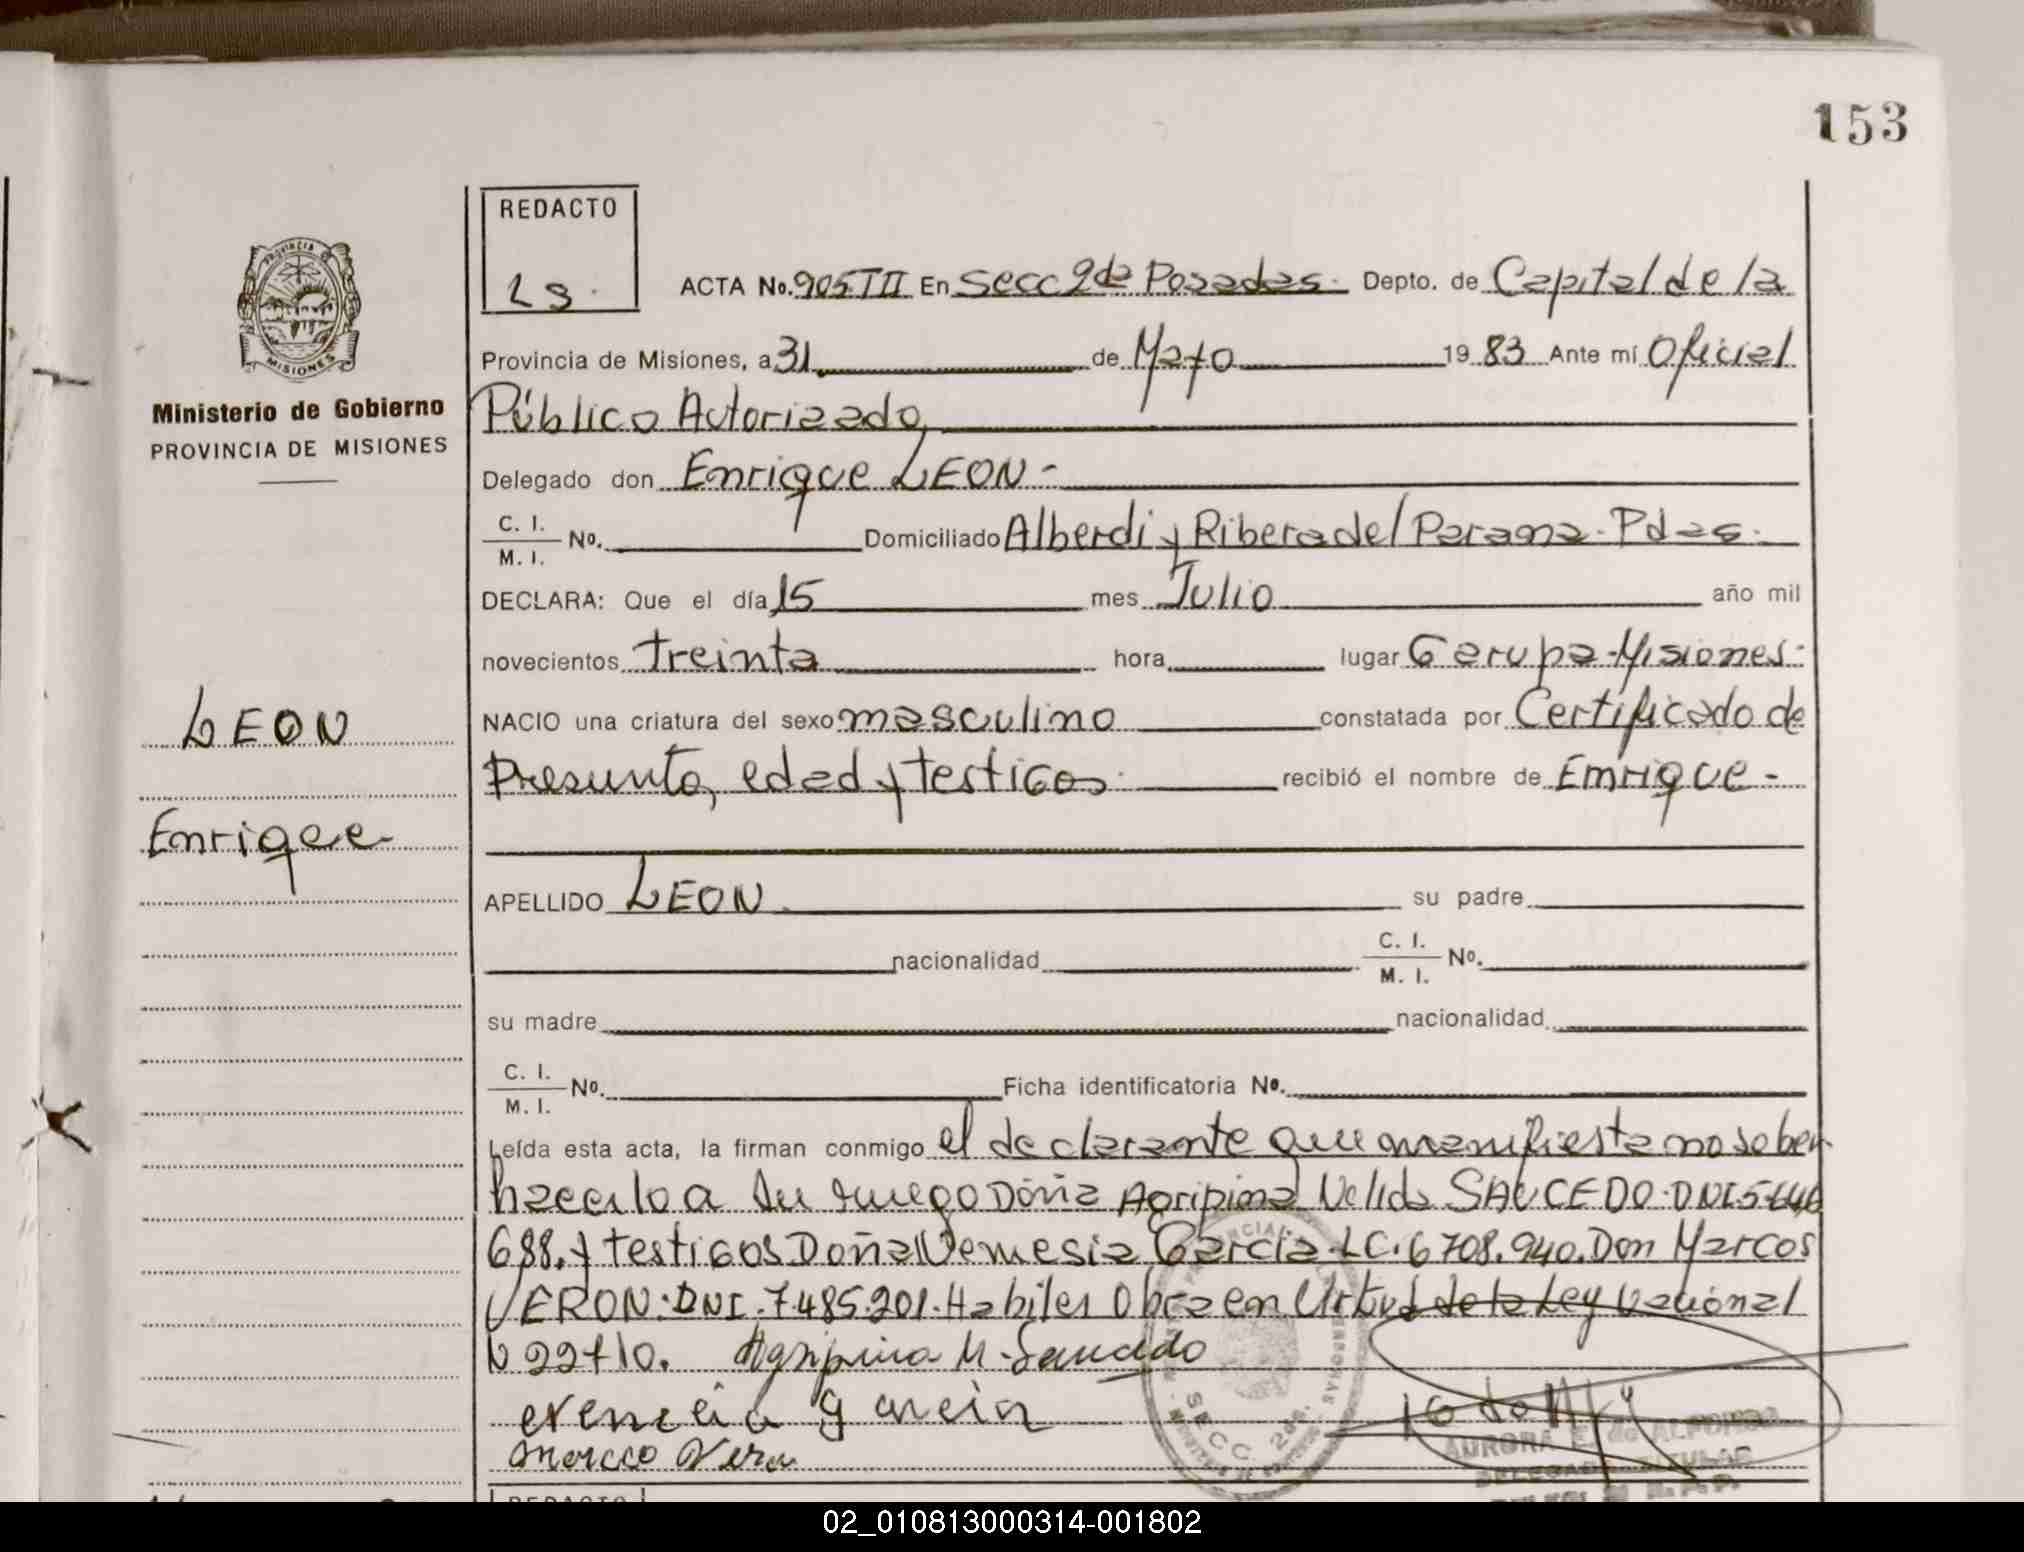 153
REDACTO
Ls.
ACTA No. 905 TII En Secc 2da Posadas. Depto. de Capital de la
Provincia de Misiones, a 31 de Mayo 19 83 Ante mí Oficial
Público Autorizado
Delegado don Enrique LEON -
C. I.
M. I. No. Domiciliado Alberdi y Ribera del Parana. Pdas.
DECLARA: Que el día 15 mes Julio año mil
novecientos treinta hora lugar Garupa - Misiones.
NACIO una criatura del sexo masculino constatada por Certificado de
Presunta, edad y testigos. recibió el nombre de Enrique -
APELLIDO LEON. su padre
nacionalidad C. I.
M. I. No.
su madre nacionalidad
C. I.
M. I. No. Ficha identificatoria No.
Leída esta acta, la firman conmigo el declarante que manifiesta no saber
hacerlo a su ruego Doña Agripina Velida SAUCEDO. DNI
688. y testigos Doña Nemesia Garcia. LC. 6 708.940. Don Marcos
VERON. DNI. 7.485.201. Habiles Obra en Virtud de la Ley Nacional
N 22410. Agripina M. Saucedo
garcia
Vera
PROVINCIA
MISIONES
Ministerio de Gobierno
PROVINCIA DE MISIONES
LEON
Enriqee
SECC 2da.
AURORA E. de ALFONSO
DELEGADA TITULAR
REDACTO
02_010813000314-001802